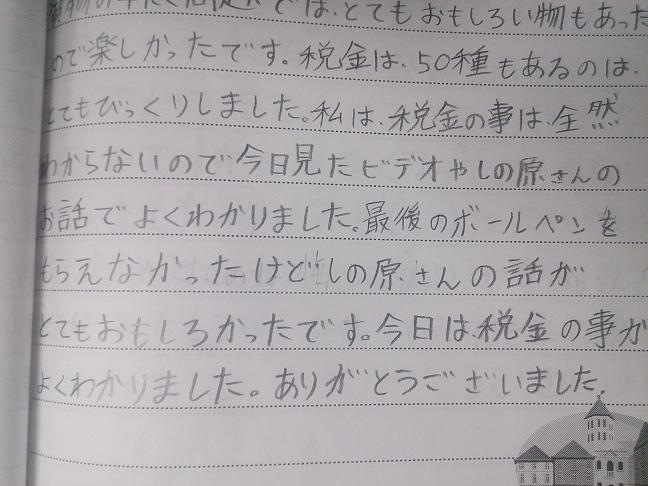 では、とてもおもしろい物もあった
ので楽しかったです。税金は、50種もあるのは、
とてもびっくりしました。私は、税金の事は、全然
わからないので今日見たビデオやしの原さんの
お話でよくわかりました。最後のボールペンを
もらえなかったけどしの原さんの話が
とてもおもしろかったです。今日は、税金の事が
よくわかりました。ありがとうございました。